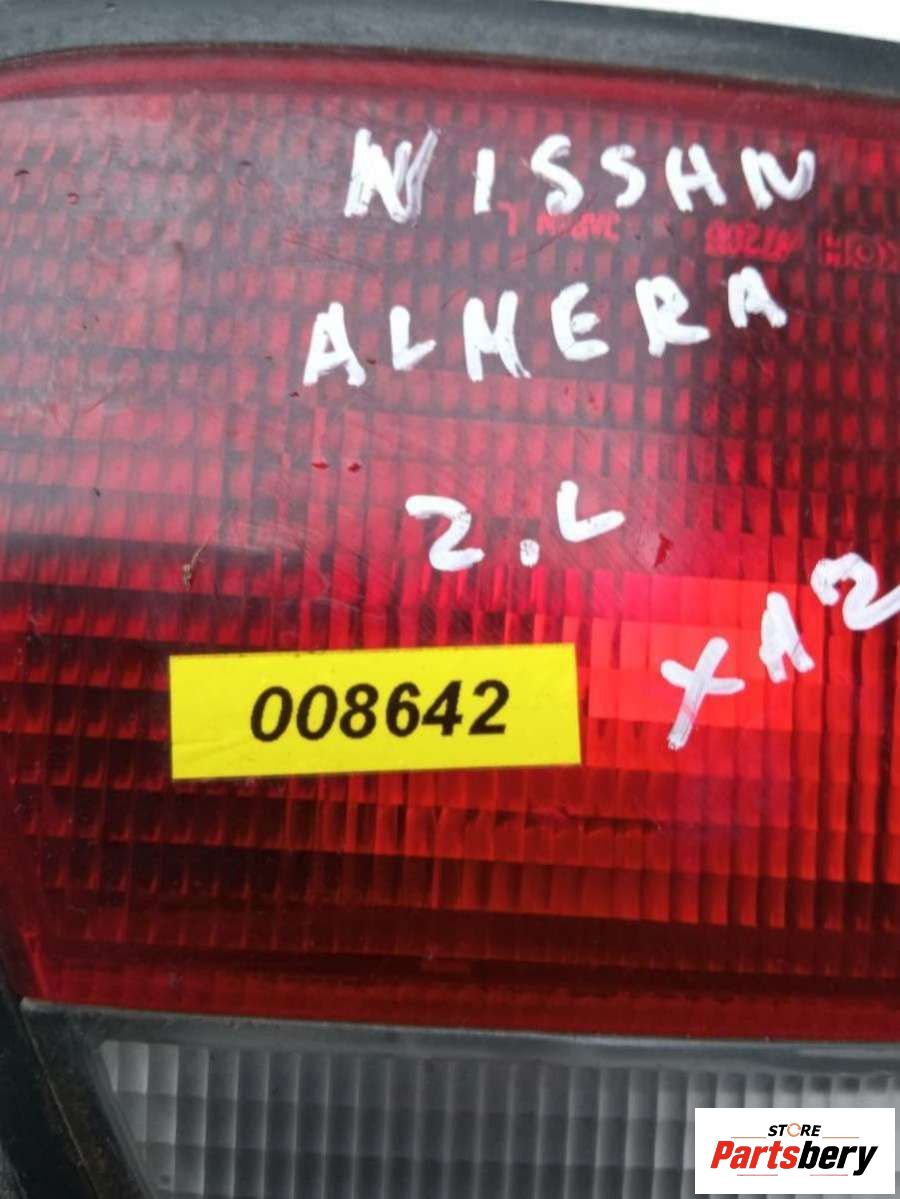 NISSAN
JAPAN L
ALMERA
2.L
XA2
008642
STORE
Partsbery